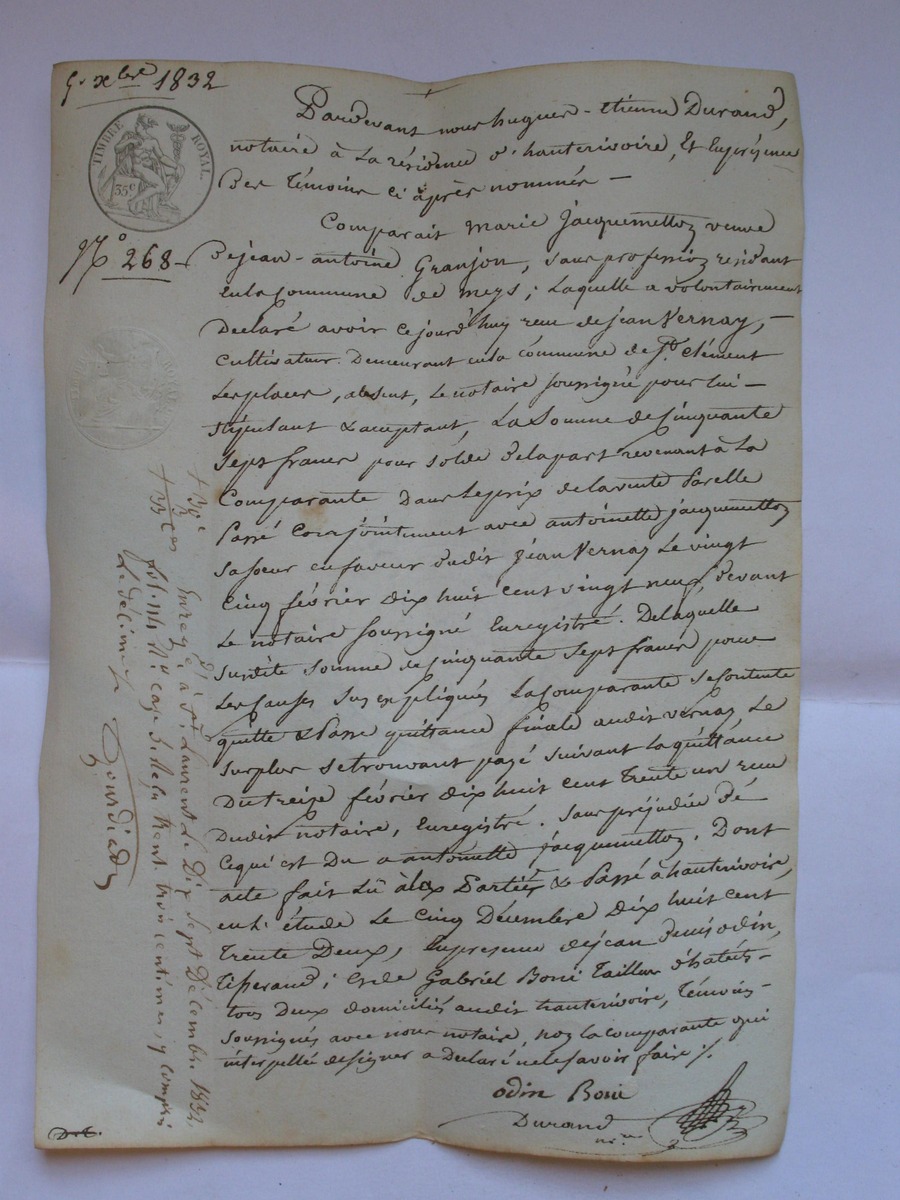 5. Xbre 1832
TIMBRE ROYAL.
35c
No 268
Pardevant nous hugues-étienne Durand,
notaire à La résidence d'hauterivoire, Et En présence
Des Témoins ci après nommés —
Comparait marie Jacquemetton veuve
De jean-antoine Granjon, sans profession résidant
en la Commune de meys; Laquelle a volontairement
Declaré avoir ce jourd'huy reçu de jean Vernay, —
Cultivateur Demeurant en la commune de St. Clément
Les places, absent, Le notaire soussigné pour lui —
stipulant & acceptant, La Somme de Cinquante
Sept francs pour solde De la part revenant à La
Comparante Dans Le prix de la vente Par elle
Passé Conjointement avec antoinette jacquemetton
Sa soeur en faveur Dudit jean Vernay Le vingt
Cinq février Dix huit Cent vingt neuf, Devant
Le notaire soussigné Enregistré. De laquelle
Surdite somme de Cinquante Sept francs pour
Les Causes Sus expliqués La comparante Se Contente
quitte & Passe quittance finale audit vernay, Le
Surplus Se trouvant payé Suivant la quittance
Du treize février Dix huit Cent Trente un reçu
Dudit notaire, Enregistré. Sans préjudice De
Ce qui est Du a antoinette jacquemetton. Dont
acte fait Lu aux Parties & Passé à hauterivoire,
en L'étude Le Cinq Décembre Dix huit Cent
Trente Deux, En presence de jean Denis odin,
Tisserand; Et de Gabriel Boni Tailleur d'habits —
tous Deux domiciliés audit hauterivoire, Témoins
Soussignés avec nous notaire, non la comparante qui
interpellée de signer a Declaré ne le savoir faire ./.
odin Boni
Durand
nre
Enregé. à St. Laurent Le Dix Sept Décembre 1832.
Reçu trente trois centimes, y compris
Le Décime